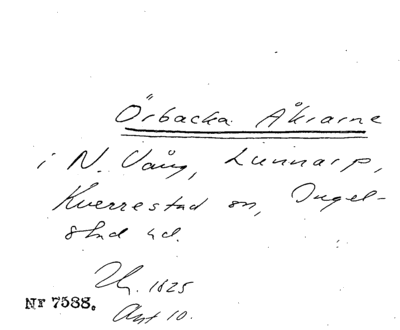 Örbacka Åkrarne
i N. Vång, Lunnarp,
Kverrestad sn, Ingel-
stad hd.
1825
Akt 10.
Nr 7588.